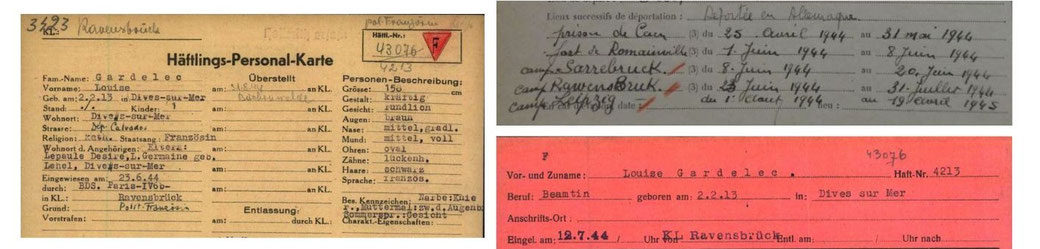 3423
KL: Ravensbrück
pol. Französin
Häftl.-Nr.:
43076
F
4213
Häftlings-Personal-Karte
Fam.-Name: Gardelec
Vorname: Louise
Geb. am: 2.2.13 in Dives-sur-Mer
Stand: ./. Kinder: 1
Wohnort: Divegs-sur-Mer
Strasse: Dép Calvados
Religion: kath. Staatsang: Französin
Wohnort d. Angehörigen: Eltern:
Lepaule Desire,L.Germaine geb.
Lenel, Divegs-sur-Mer
Eingewiesen am: 23.6.44
durch: BDS. Paris-IVòb-
in KL.: Ravensbrück
Grund: Polit-Französin
Vorstrafen:
Überstellt
am: an KL.
Buchenwalde
am: an KL.
am: an KL.
am: an KL.
am: an KL.
am: an KL.
Entlassung:
am: durch KL.:
Personen-Beschreibung:
Grösse: 158 cm
Gestalt: kräftig
Gesicht: rundlich
Augen: braun
Nase: mittel, gradl.
Mund: mittel, voll
Ohren: oval
Zähne: lückenh.
Haare: schwarz
Sprache: französ.
Bes. Kennzeichen: Narbe:Knie
r., Muttermal:zw.d.Augenb
Sommerspr.:Gesicht
Charakt.-Eigenschaften:
Lieux successifs de déportation : Déportée en Allemagne
prison de Caen (3) du 25 avril 1944 au 31 mai 1944
fort de Romainville (3) du 1 Juin 1944 au 8 Juin 1944
camp Sarrebruck (3) du 8 Juin 1944 au 20 Juin 1944
camp Rawensbruk (3) du 23 Juin 1944 au 31 Juillet 1944
camp Leipzig date : du 1 aout 1944 au 19 avril 1945
F
43076
Vor- und Zuname: Louise Gardelec . Haft-Nr. 4213
Beruf: Beamtin geboren am: 2.2.13 in Dives sur Mer
Anschrifts-Ort :
Eingel. am: 12.7.44 / Uhr von KL Ravensbrück Entl. am: / Uhr nach